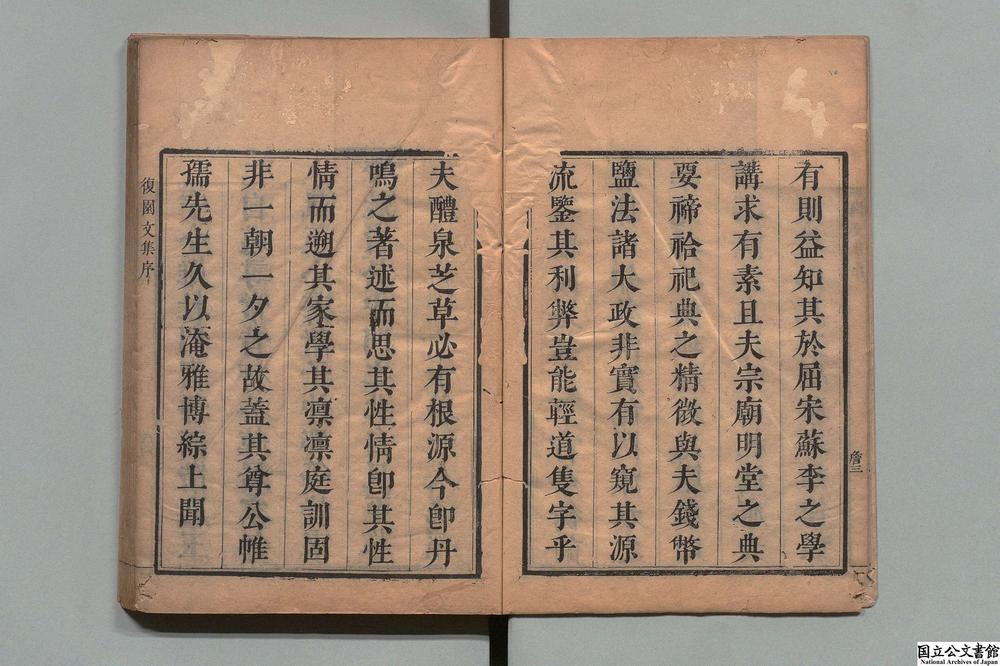 有則益知其於屈宋蘇李之學
講求有素且夫宗廟明堂之典
要禘祫祀典之精微與夫錢幣
鹽法諸大政非實有以窺其源
流鑒其利弊豈能輕道隻字乎
夫醴泉芝草必有根源今卽丹
鳴之著述而思其性情卽其性
情而遡其家學其凛凛庭訓固
非一朝一夕之故蓋其尊公惟
孺先生久以淹雅博綜上聞
復園文集序
國立公文書館
National Archives of Japan